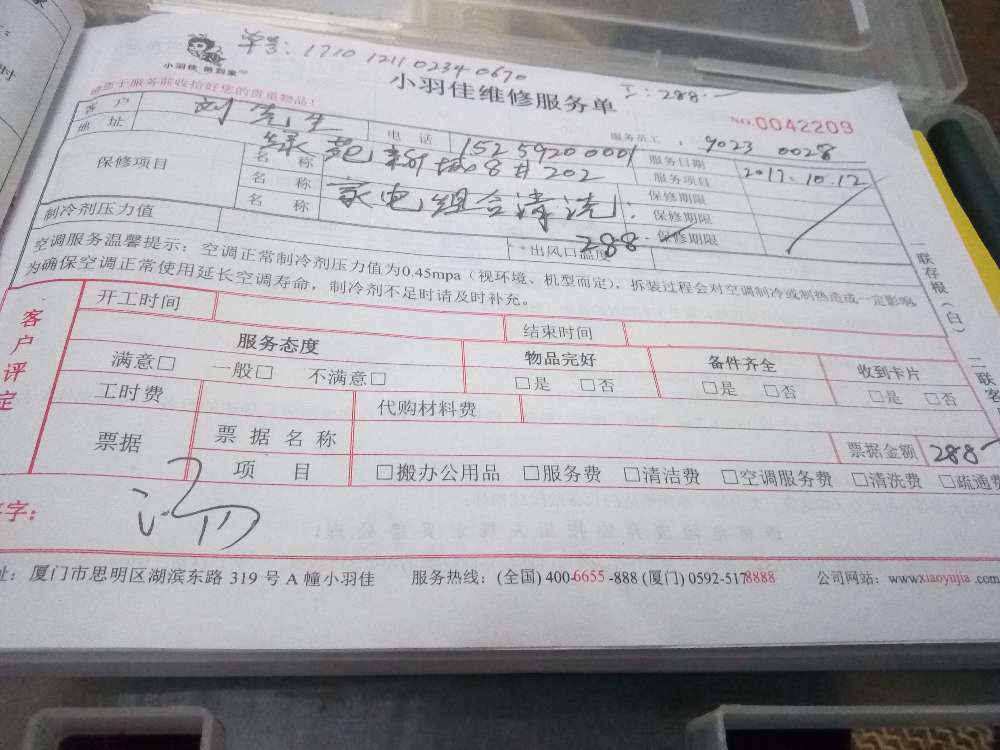 单号: 1710 1211 0234 0670
工: 288.—
小羽佳 帮到家
小羽佳维修服务单
请您于服务前收拾好您的贵重物品!
服务员工: 9023 0028
NO.0042209
客户 刘先生 电话 15259200001 服务日期 2017.10.12
地址 绿苑新城8#202 服务项目
保修项目 名称 家电组合清洗: 保修期限
名称 保修期限
名称 288.— 保修期限
制冷剂压力值 出风口温度
空调服务温馨提示: 空调正常制冷剂压力值为0.45mpa (视环境、机型而定), 拆装过程会对空调制冷或制热造成一定影响
为确保空调正常使用延长空调寿命, 制冷剂不足时请及时补充。
一联存根(白)
二联客
客户评定
开工时间 结束时间
服务态度 物品完好 备件齐全 收到卡片
满意□ 一般□ 不满意□ □是 □否 □是 □否 □是 □否
工时费 代购材料费
票据 票据名称 票据金额 288—
项目 □搬办公用品 □服务费 □清洁费 □空调服务费 □清洗费 □疏通费
字:
址: 厦门市思明区湖滨东路 319 号 A 幢小羽佳 服务热线: (全国) 400-6655-888 (厦门) 0592-5178888 公司网站: www.xiaoyujia.com